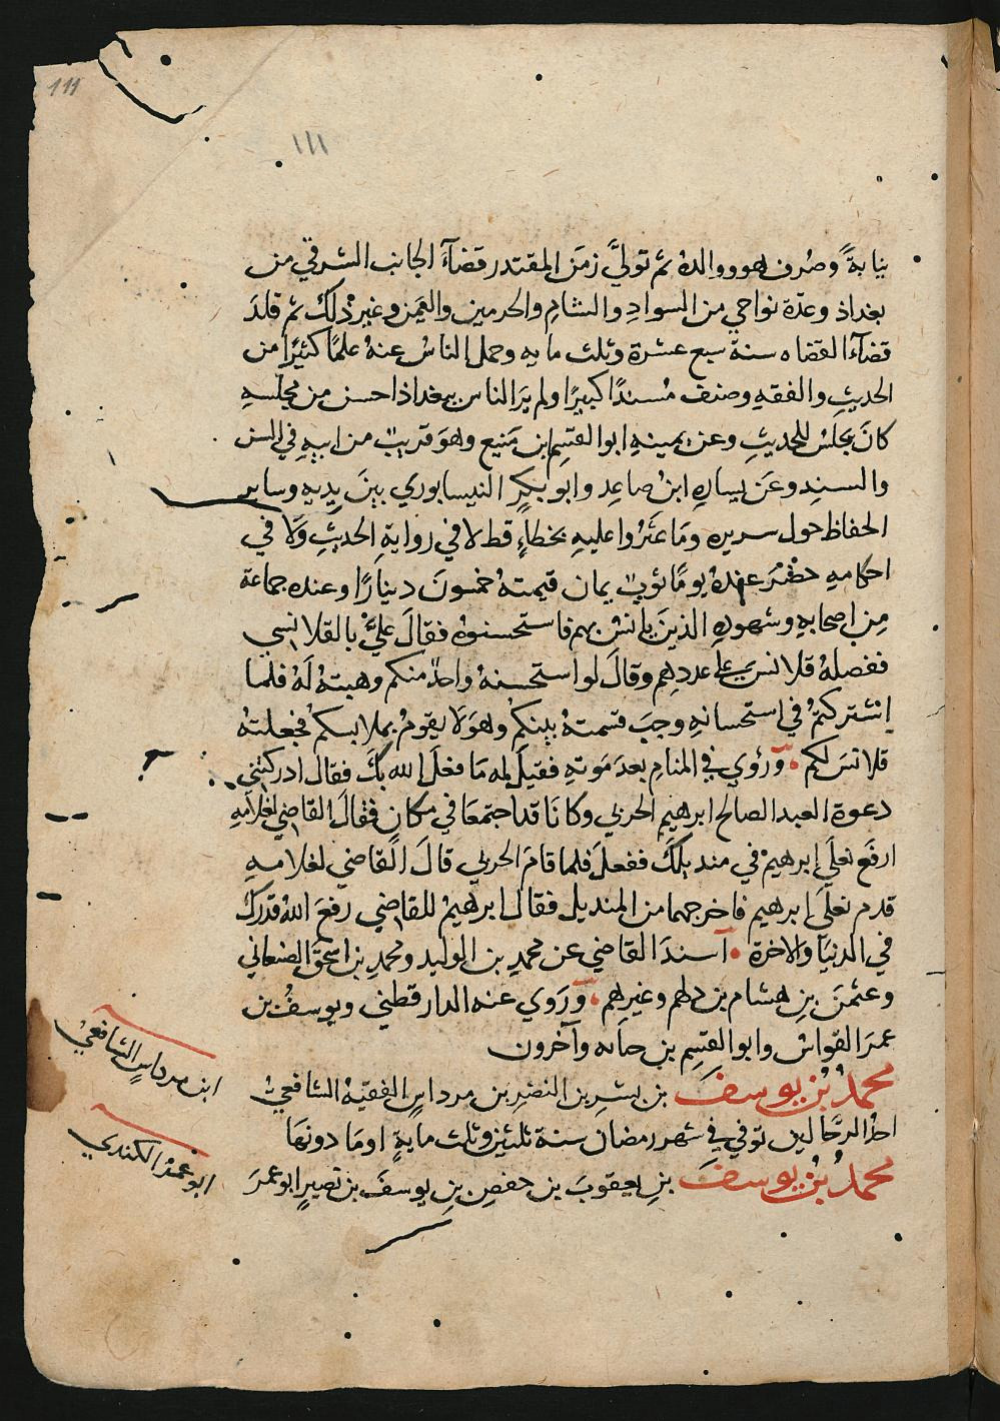 111
١١١
نيابةً وصُرف هو ووالدهُ ثم تولىَّ زمَن المقتدر قضآءَ الجانب الشرقي من
بغداذ وعدّة نواحي من السوادِ والشامِ والحرمين واليمَن وغير ذلك ثم قلدَ
قضآءَ القضاه سنةَ سبع عشرة وثلث مايه وحمل الناسُ عنهُ علمًا كثيرًا من
الحديثِ والفقهِ وصنف مُسندًا كبيرًا ولم يَرَ الناس ببغداذ احسن من مجلسهِ
كانَ يجلسُ للحديثِ وعن يمينهِ ابو القسِم ابن مَنيع وهوَ قريبٌ من ابيهِ في السن
والسندِ وعَن يسارهِ ابنُ صاعِد وابو بكرٍ النيسابوري بينَ يديهِ وساير
الحفاظ حول سريره ومَا عثَرُوا عليهِ بخطاءٍ قط لا في روايةِ الحديثِ ولَا في
احكامهِ حضَرَ عندهُ يومًا ثوبٌ يمان قيمتهُ خمسونَ دينارًا وعنده جماعة
مِن اصحابهِ وشهودهِ الذينَ يانسُ بهم فاستحسنوهُ فقالَ عليَّ بالقلانسي
ففصلهُ قلانس على عددهم وقالَ لو استحسنهُ واحدٌ منكم وهبتهُ لَهُ فلما
إشتركتمُ في استحسانهِ وجبَ قسمتهُ بينكمُ وهوَ لَا يقومُ بملابسكمُ فجعلتهُ
قلانسَ لكم ۰ ورؤي في المنامِ بعدَ مَوتهِ فقيلَ له مَا فعلَ الله بكَ فقال ادركتني
دعوة العبد الصالح ابرهيم الحربي وكانَا قد اجتمعَا في مكان فقالَ القاضي لغلامهِ
ارفَع نعلَي إبرهيمُ في منديلكَ ففعلَ فلما قامَ الحربي قالَ القاضي لغلامهِ
قدم نعلَي إبرهيم فاخرجهما من المنديل فقال ابرهيمُ للقاضي رفعَ اللهُ قدركَ
في الدنيَا والاخرة ۰ اسندَ القاضي عن محمدِ بن الوليد ومحمدِ بن اسحق الصنعاني
وعثمنَ بنِ هشام بن دلهم وغيرهم ۰ ورَوي عنه الدارقطني ويوسفُ بن
عمرَ القواسُ وابو القسِم بن حبابه وآخرون
محمدُ بُن يوسفَ بن بشرِ بن النضرِ بن مرداسٍ الفقيهُ الشافعيُ
احدُ الرحّالين توفي في شهر رمضان سنة ثلثين وثلث مايةٍ او مَا دونهَا
محمدُ بُن يوسفَ بنِ يعقوبَ بن حفصِ بنِ يوسفَ بن نصيرٍ ابو عمرَ
ابن مرداسٍ الشافعيُ
ابو عمرُ الكندي